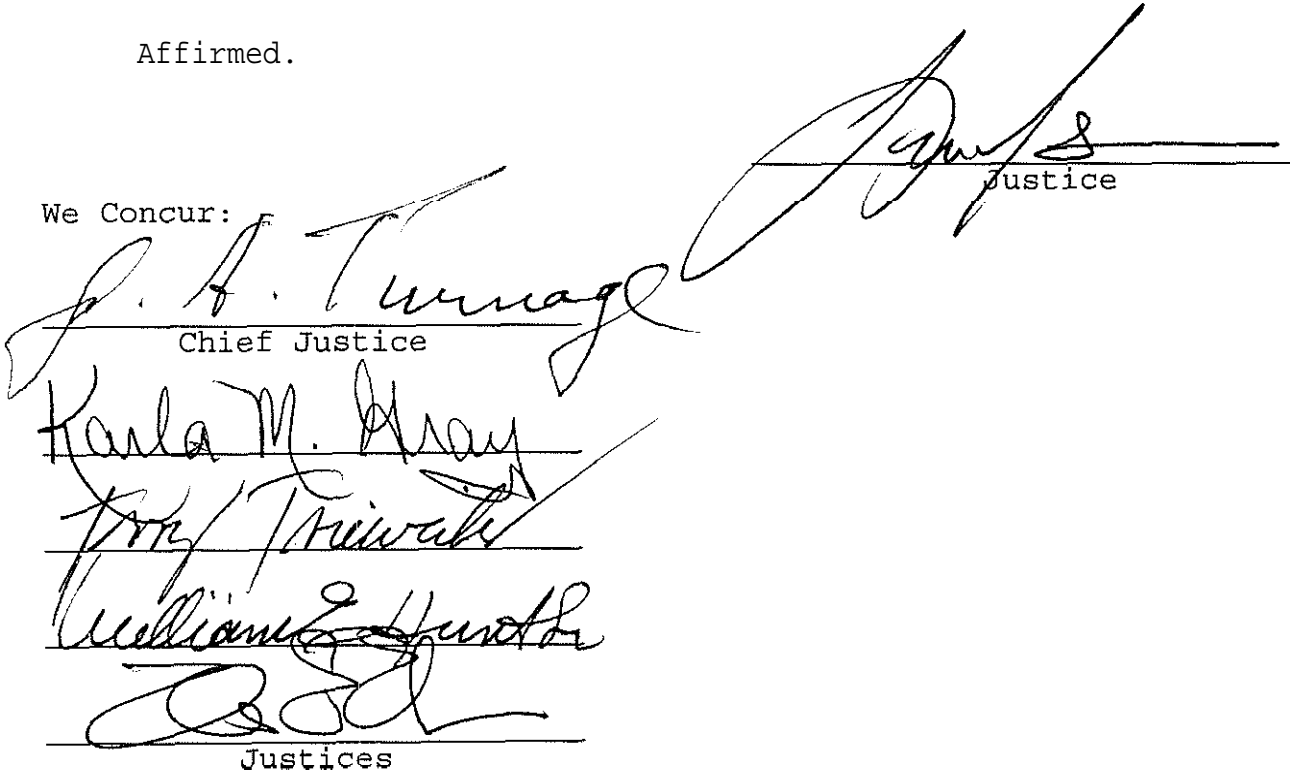 Affirmed.
Justice
We Concur:
J. A. Turnage
Chief Justice
Karla M. Gray
Terry Trieweiler
William E. Hunt Sr
Justices